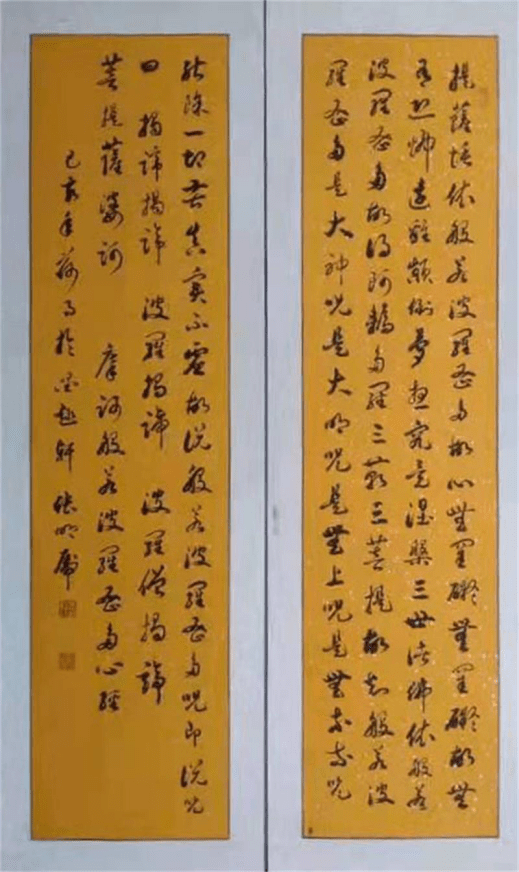 提薩埵依般若波羅蜜多故心無罣礙無罣礙故無
有恐怖遠離顛倒夢想究竟涅槃三世諸佛依般若
波羅蜜多故得阿耨多羅三藐三菩提故知般若波
羅蜜多是大神呪是大明呪是無上呪是無等等呪
能除一切苦真實不虛故說般若波羅蜜多呪即說呪
曰 揭諦揭諦 波羅揭諦 波羅僧揭諦
菩提薩婆訶 摩訶般若波羅蜜多心經
己亥年月於趣軒 張明